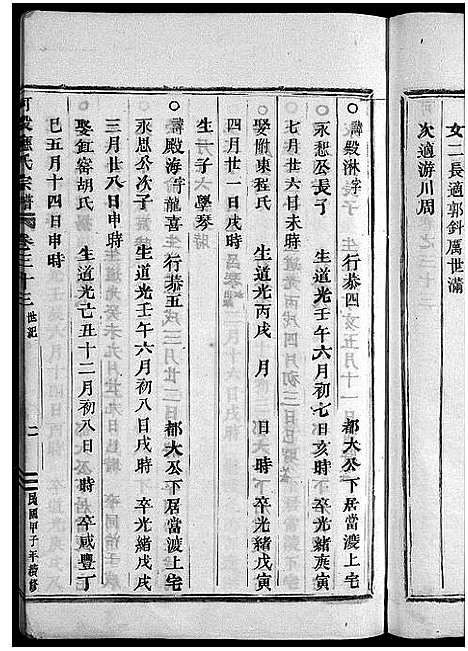 女二長適郭針厲世滿
次適游川周
○諱殿淋字　行恭四　都大公下居當渡上宅
永恕公長子　生道光壬午六月初七日亥時　卒光緒庚寅
七月廿六日未時
娶附東程氏　生道光丙戌　月　日　時　卒光緒戊寅
四月廿一日戌時
生一子　學琴
○諱殿海字龍喜　行恭五　都大公下居當渡上宅
永恩公次子　生道光壬午六月初八日戌時　卒光緒戊戌
三月廿八日申時
娶缸窑胡氏　生道光己丑十二月初八日　時　卒咸豐丁
巳五月十四日申時
氏宗譜　卷三十三　世紀　二　民國甲子年續修